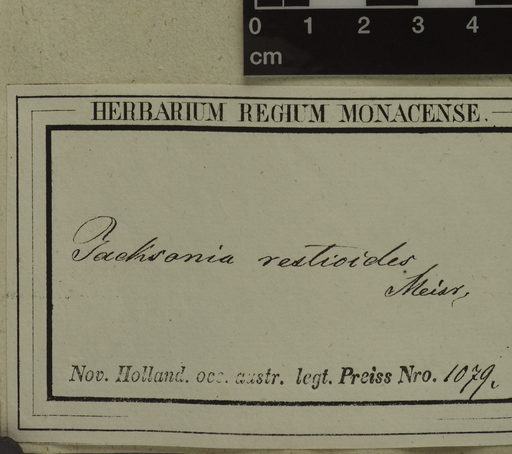 0 1 2 3 4
cm
HERBARIUM REGIUM MONACENSE.
Jacksonia restioides
Meisr,
Nov. Holland. occ. austr. legt. Preiss Nro. 1079.